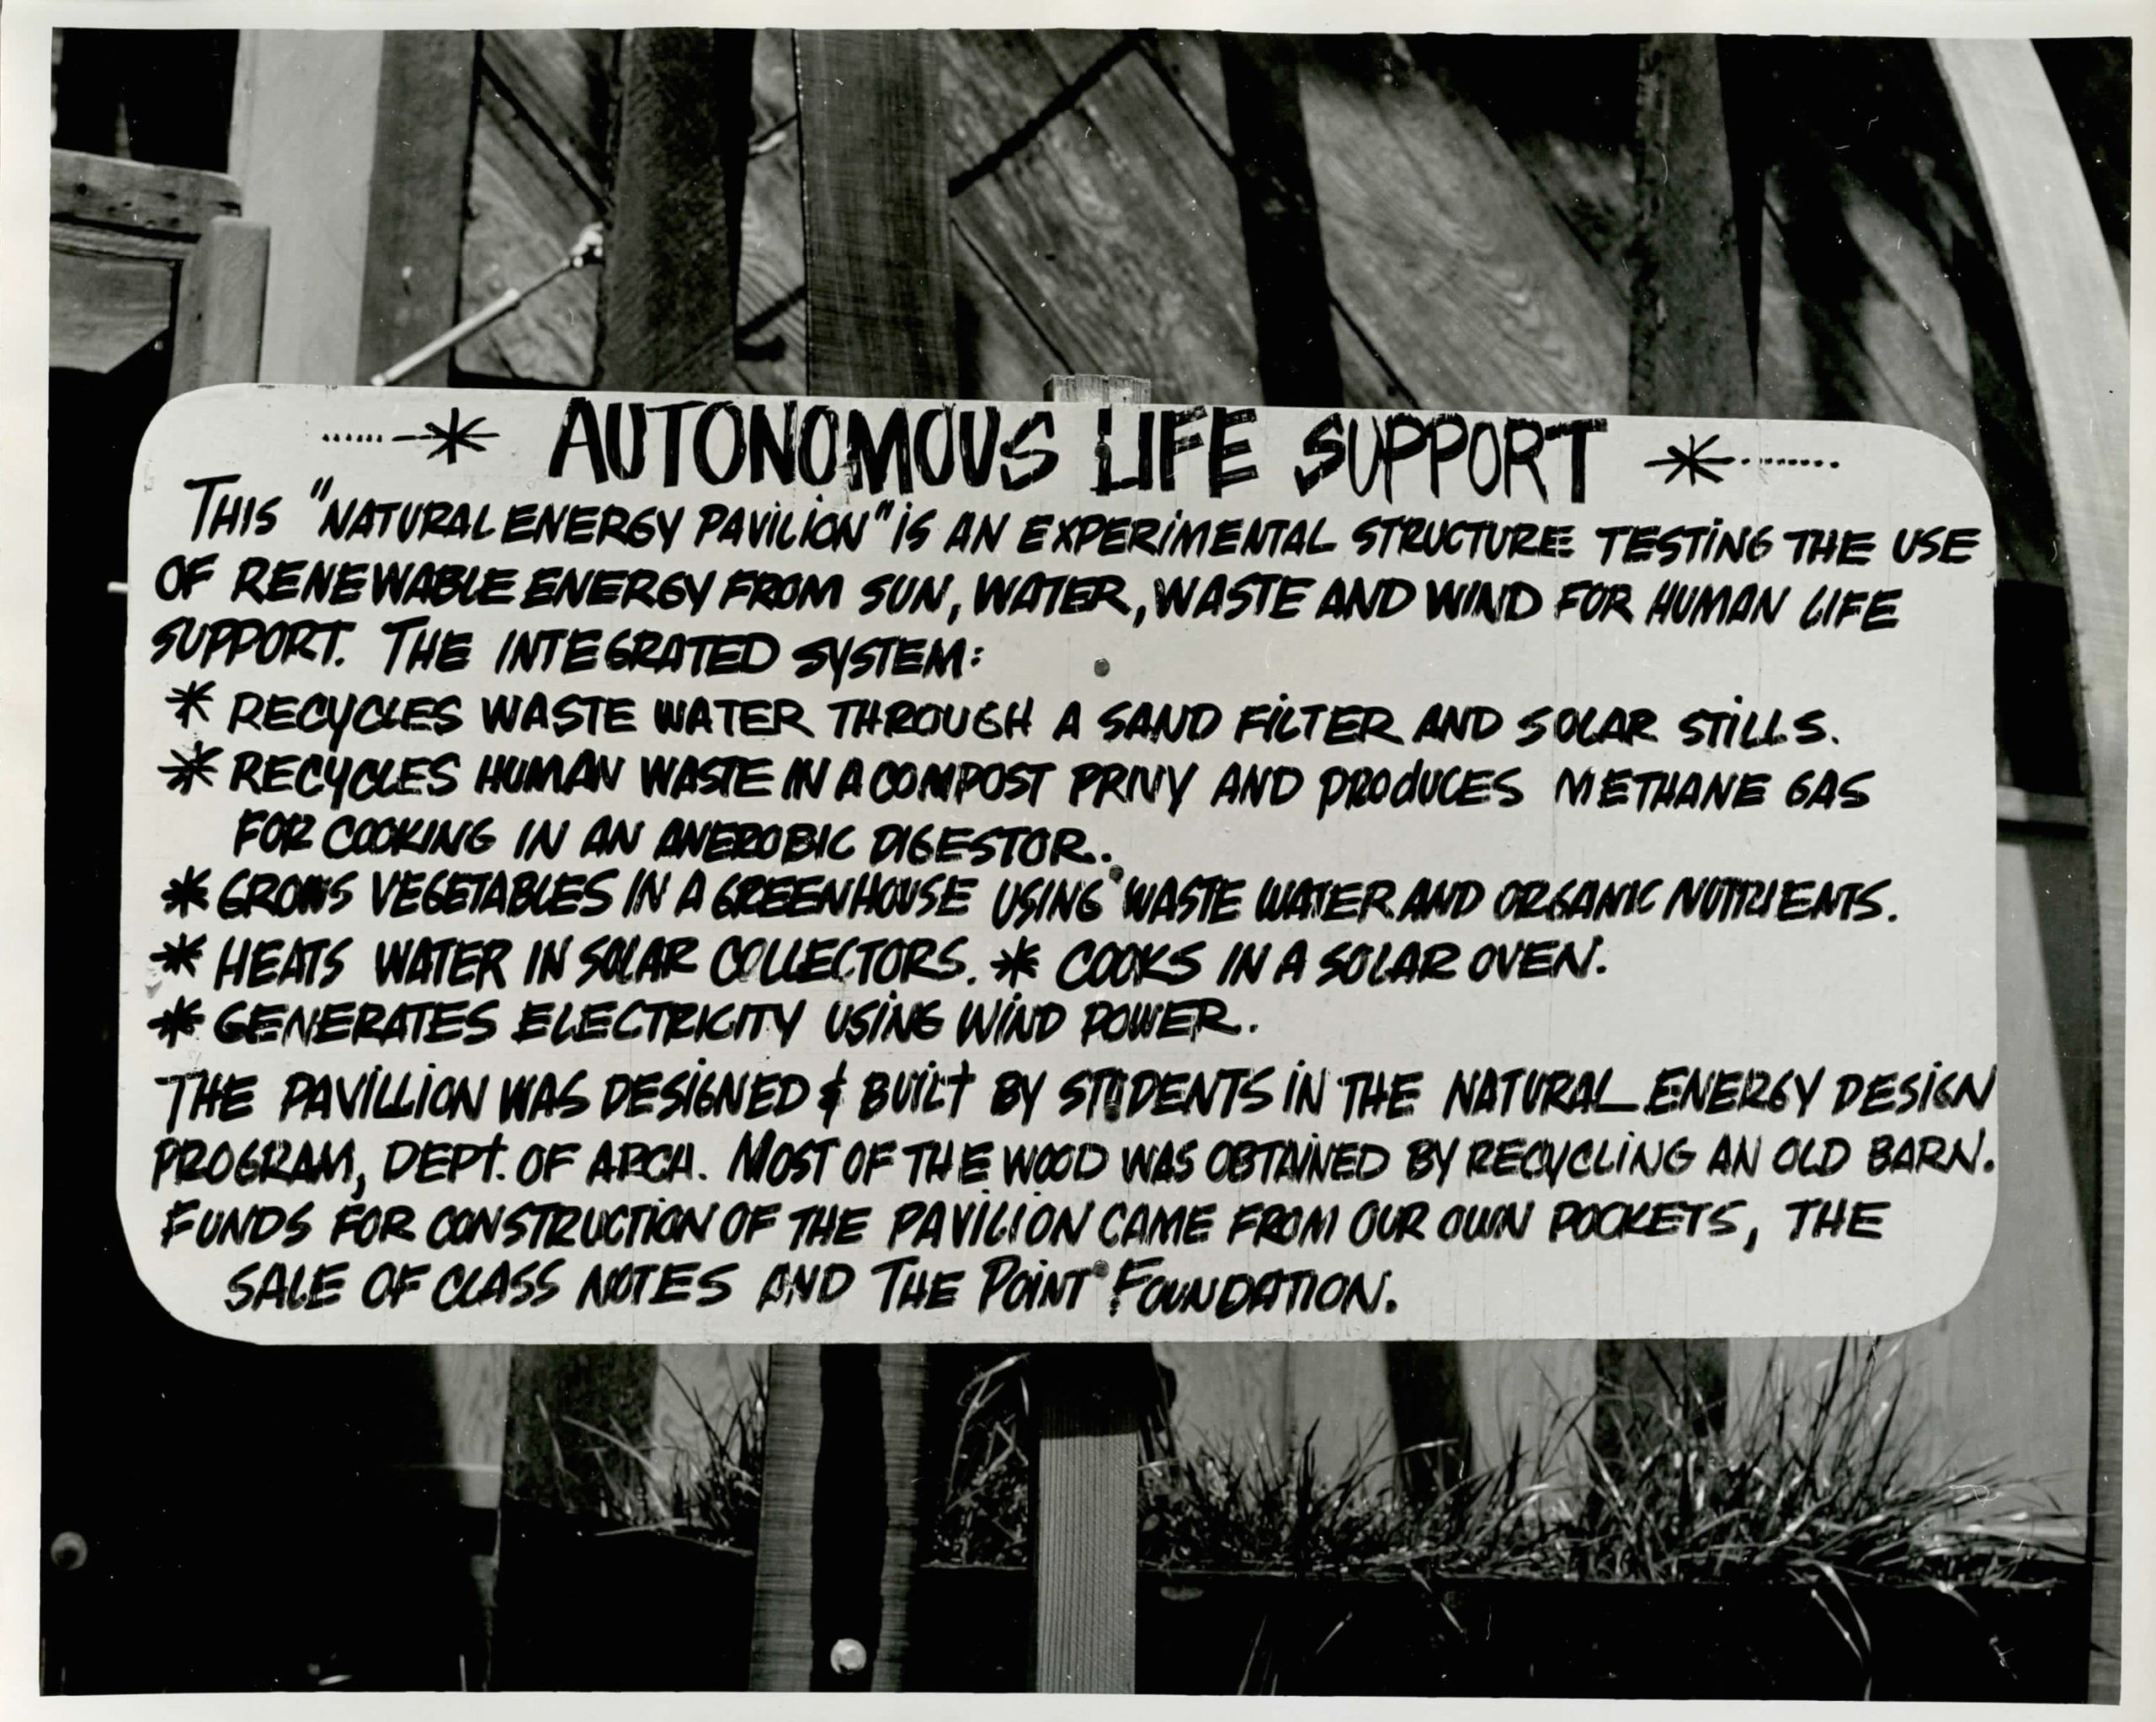 ······—* AUTONOMOUS LIFE SUPPORT —*·······
THIS "NATURAL ENERGY PAVILION" IS AN EXPERIMENTAL STRUCTURE TESTING THE USE
OF RENEWABLE ENERGY FROM SUN, WATER, WASTE AND WIND FOR HUMAN LIFE
SUPPORT. THE INTEGRATED SYSTEM:
* RECYCLES WASTE WATER THROUGH A SAND FILTER AND SOLAR STILLS.
* RECYCLES HUMAN WASTE IN A COMPOST PRIVY AND PRODUCES METHANE GAS
FOR COOKING IN AN ANEROBIC DIGESTOR..
* GROWS VEGETABLES IN A GREENHOUSE USING WASTE WATER AND ORGANIC NUTRIENTS.
* HEATS WATER IN SOLAR COLLECTORS. * COOKS IN A SOLAR OVEN.
* GENERATES ELECTRICITY USING WIND POWER.
THE PAVILLION WAS DESIGNED & BUILT BY STUDENTS IN THE NATURAL ENERGY DESIGN
PROGRAM, DEPT. OF ARCH. MOST OF THE WOOD WAS OBTAINED BY RECYCLING AN OLD BARN.
FUNDS FOR CONSTRUCTION OF THE PAVILION CAME FROM OUR OWN POCKETS, THE
SALE OF CLASS NOTES AND THE POINT FOUNDATION.